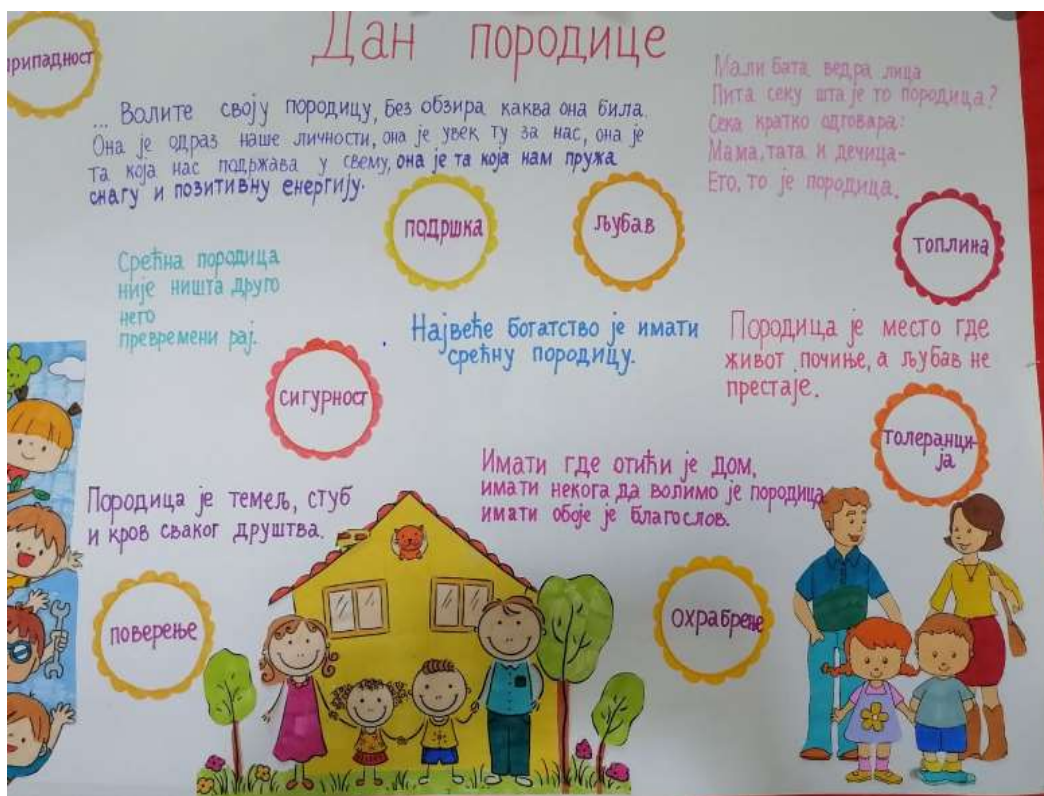 Дан породице
припадност
... Волите своју породицу, без обзира каква она била.
Она је одраз наше личности, она је увек ту за нас, она је
та која нас подржава у свему, она је та која нам пружа
снагу и позитивну енергију.
Мали бата ведра лица
Пита секу шта је то породица?
Сека кратко одговара:
Мама, тата и дечица-
Ето, то је породица.
подршка
љубав
топлина
Срећна породица
није ништа друго
него
превремени рај.
Највеће богатство је имати
срећну породицу.
Породица је место где
живот почиње, а љубав не
престаје.
сигурност
толеранци-
ја
Породица је темељ, стуб
и кров сваког друштва.
Имати где отићи је дом,
имати некога да волимо је породица,
имати обоје је благослов.
поверење
охрабрење